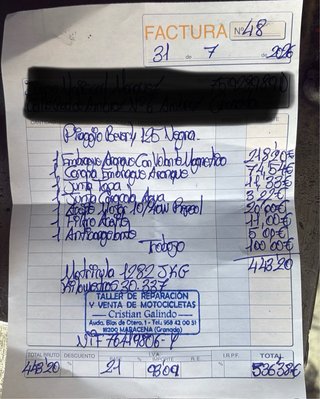 FACTURA Nº 48
31 de 7 de 2026
Piaggio Beverly 125 Negra
1 Embrague Arranque Con Volante Magnetico
1 Corona Embrague Arranque 74,54€
1 Junta Tapa
1 Junta Carcasa Agua
1 Aceite Motor 10/40W Repsol 20,00€
1 Filtro Aceite 11,00€
1 Anticongelante 5,00€
Trabajo 100,00€
443,20
Matricula 1282 JKG
Kilometros 30.337
TALLER DE REPARACIÓN
Y VENTA DE MOTOCICLETAS
Cristian Galindo
Avda. Blas de Otero, 1 - Tel.: 958 42 00 51
18200 MARACENA (Granada)
NIF 76419806-Y
TOTAL BRUTO DESCUENTO I.V.A. R.E. I.R.P.F. TOTAL
443,20 21 93,07 536,38€